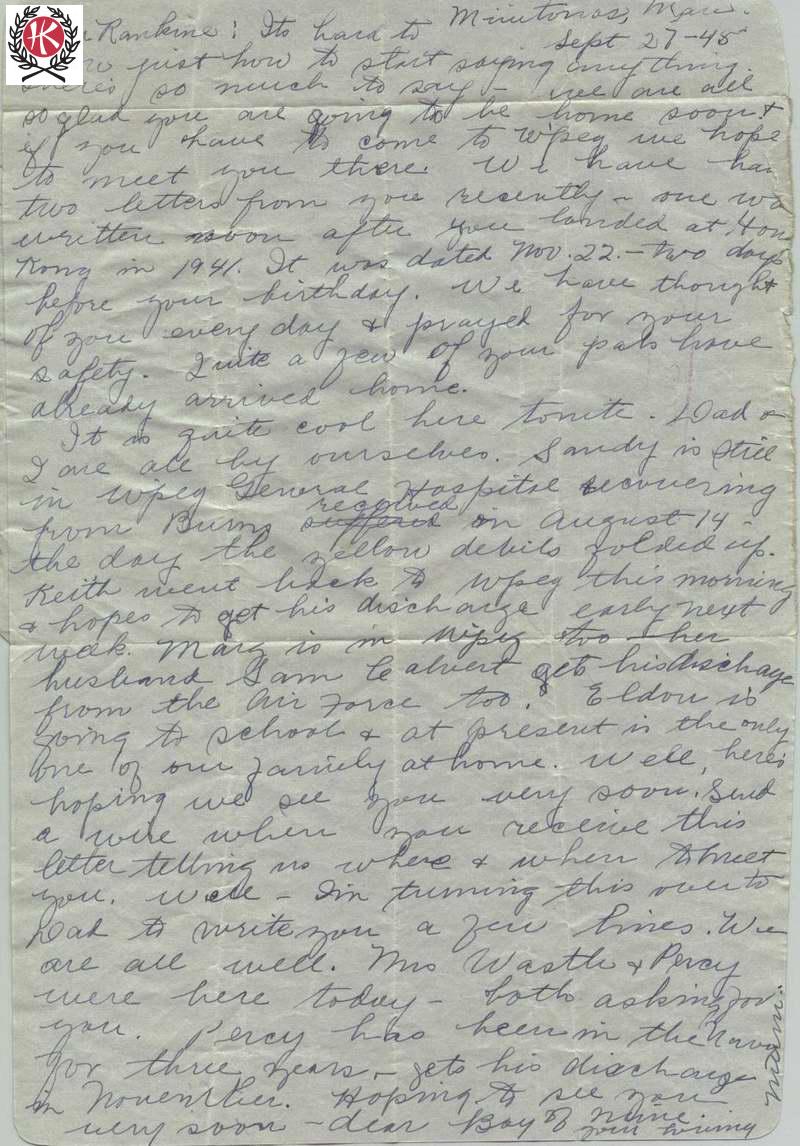 HK
Minitonas, Man.
Sept 27-45
Rankine: Its hard to
just how to start saying anything.
there's so much to say - we are all
so glad you are going to be home soon &
if you have to come to Wpeg we hope
to meet you there. We have had
two letters from you recently - one was
written soon after you landed at Hon
Kong in 1941. It was dated Nov. 22. - two days
before your birthday. We have thought
of you every day & prayed for your
safety. Quite a few of your pals have
already arrived home.
It is quite cool here tonite. Dad &
I are all by ourselves. Sandy is still
in Wpeg General Hospital recovering
from Burns received suffered in August 14 -
the day the yellow debils folded up.
Keith went back to Wpeg this morning
& hopes to get his discharge early next
week. Marg is in Wpeg too - her
husband Sam Calvert gets his dischage
from the Air Force too. Eldon is
going to school & at present is the only
one of our family at home. Well, here's
hoping we see you very soon. Send
a wire when you receive this
letter telling us where & when to meet
you. Well - I'm turning this over to
Dad to write you a few lines. We
are all well. Mrs Wastle & Percy
were here today - both asking for
you. Percy has been in the Navy
for three years - gets his discharge
in November. Hoping to see you
very soon - dear Boy of mine.
your loving
Mam.